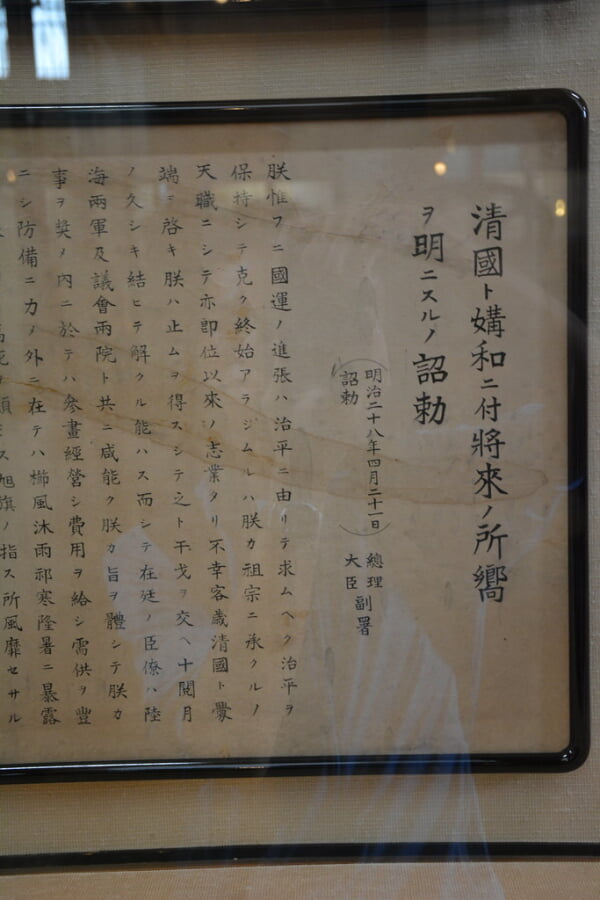 清國ト媾和ニ付將來ノ所嚮
ヲ明ニスルノ詔勅
明治二十八年四月二十一日
詔勅
總理
大臣副署
朕惟フニ國運ノ進張ハ治平ニ由リテ求ムヘク治平ヲ
保持シテ克ク終始アラシムルハ朕カ祖宗ニ承クルノ
天職ニシテ亦即位以來ノ志業タリ不幸客歲清國ト釁
端ヲ啓キ朕ハ止ムヲ得スシテ之ト干戈ヲ交ヘ十閱月
ノ久シキ結ヒテ解クル能ハス而シテ在廷ノ臣僚ハ陸
海兩軍及議會兩院ト共ニ咸能ク朕カ旨ヲ體シテ朕カ
事ヲ奬メ內ニ於テハ參畫經營シ費用ヲ給シ需供ヲ豐
ニシ防備ニカメ外ニ在テハ櫛風沐雨祁寒隆暑ニ暴露
旭旗ノ指ス所風靡セサル